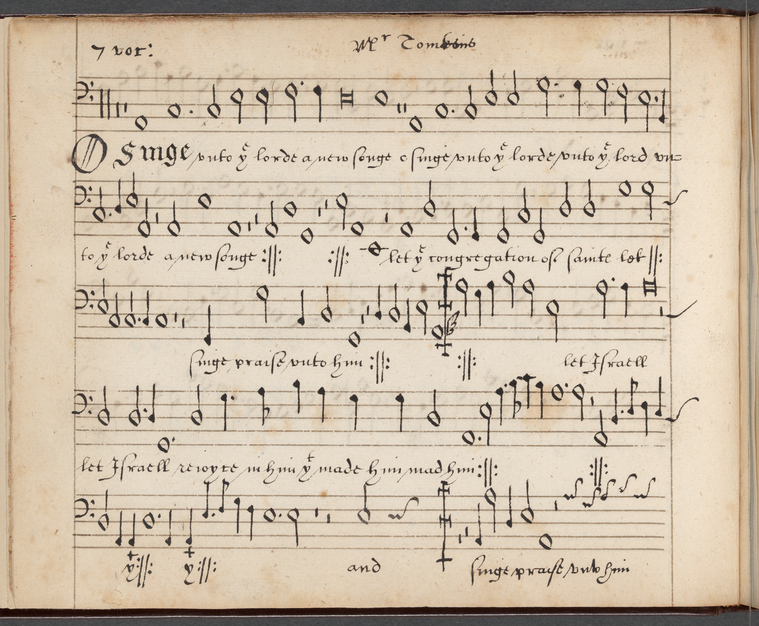 7 voc: Mr Tomkins
O Singe vnto ye lorde a new songe o singe vnto ye lorde vnto ye lord vn=
to ye lorde a new songe :||: :||: let ye congregation of saints let :||:
singe praise vnto him :||: :||: let Israell
let Israell reioyce in him yt made him mad him :||: :||:
yt :||: yt :||: and singe praise vnto him